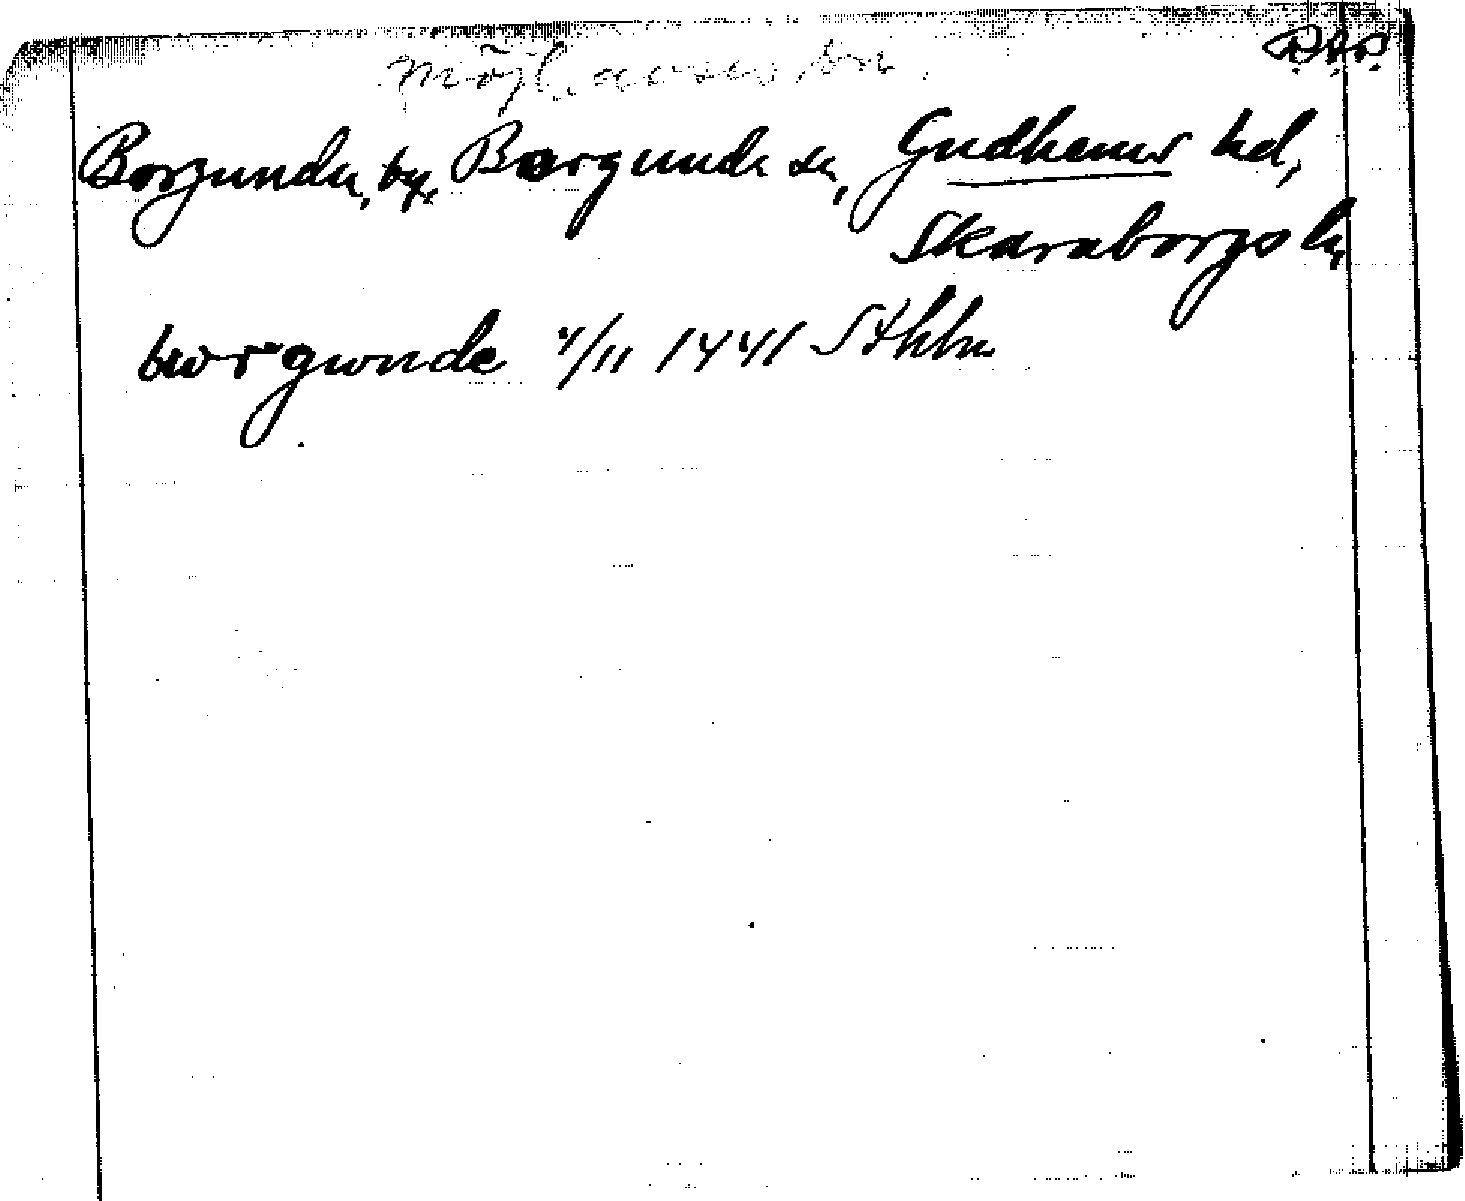 Möjl. avses sn.
R.A.P.
Borgunda, by, Borgunda sn, Gudhems hd,
Skaraborgs l.,
bworgwnde 4/11 1441 Sthlm